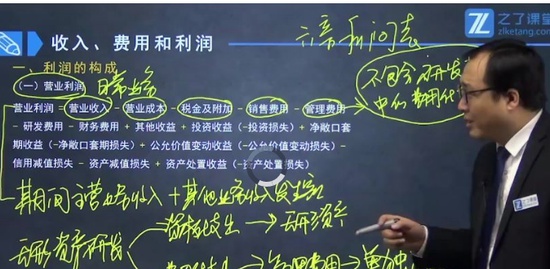 之了课堂
zlketang.com
收入、费用和利润
一、利润的构成
(一)营业利润 日常业务
营业利润=营业收入-营业成本-税金及附加-销售费用-管理费用
-研发费用-财务费用+其他收益+投资收益(-投资损失)+净敞口套
期收益(-净敞口套期损失)+公允价值变动收益(-公允价值变动损失)-
信用减值损失-资产减值损失+资产处置收益(-资产处置损失)
不包含研发
中的费用化
期间主营业务收入+其他业务收入
无形资产研发
资本化支出→无形资产
管理费用→单独
之了课堂